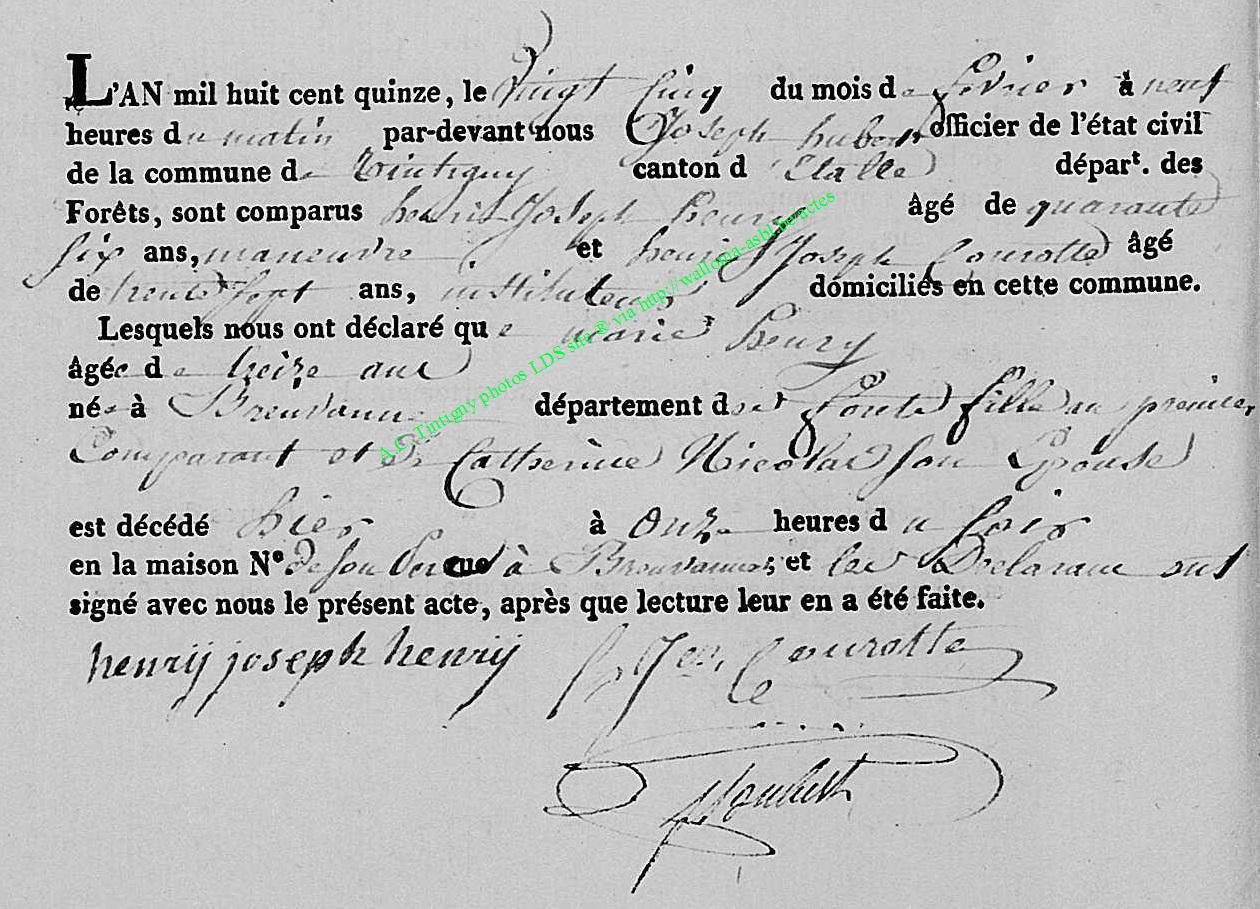 L'AN mil huit cent quinze, le Vingt Cinq du mois de fevrier à neuf
heures du matin par-devant nous Joseph hubert officier de l'état civil
de la commune de Tintigny canton d'Etalle départ. des
Forêts, sont comparus henri Joseph henry âgé de quarante
six ans, maneuvre et henri Joseph Courotte âgé
de trente sept ans, instituteur domiciliés en cette commune.
Lesquels nous ont déclaré que marie henry
âgée de treize ans
née à Breuvanne département des forets fille au premier
Comparant et de Catherine Nicolas son Epouse
est décédé hier à onze heures du soir
en la maison N° de son pere à Breuvanne; et les Declarans ont
signé avec nous le présent acte, après que lecture leur en a été faite.
henrij joseph henrij Courotte
A.C. Tintigny photos LDS site ® via http://wallonia-asbl.be/actes